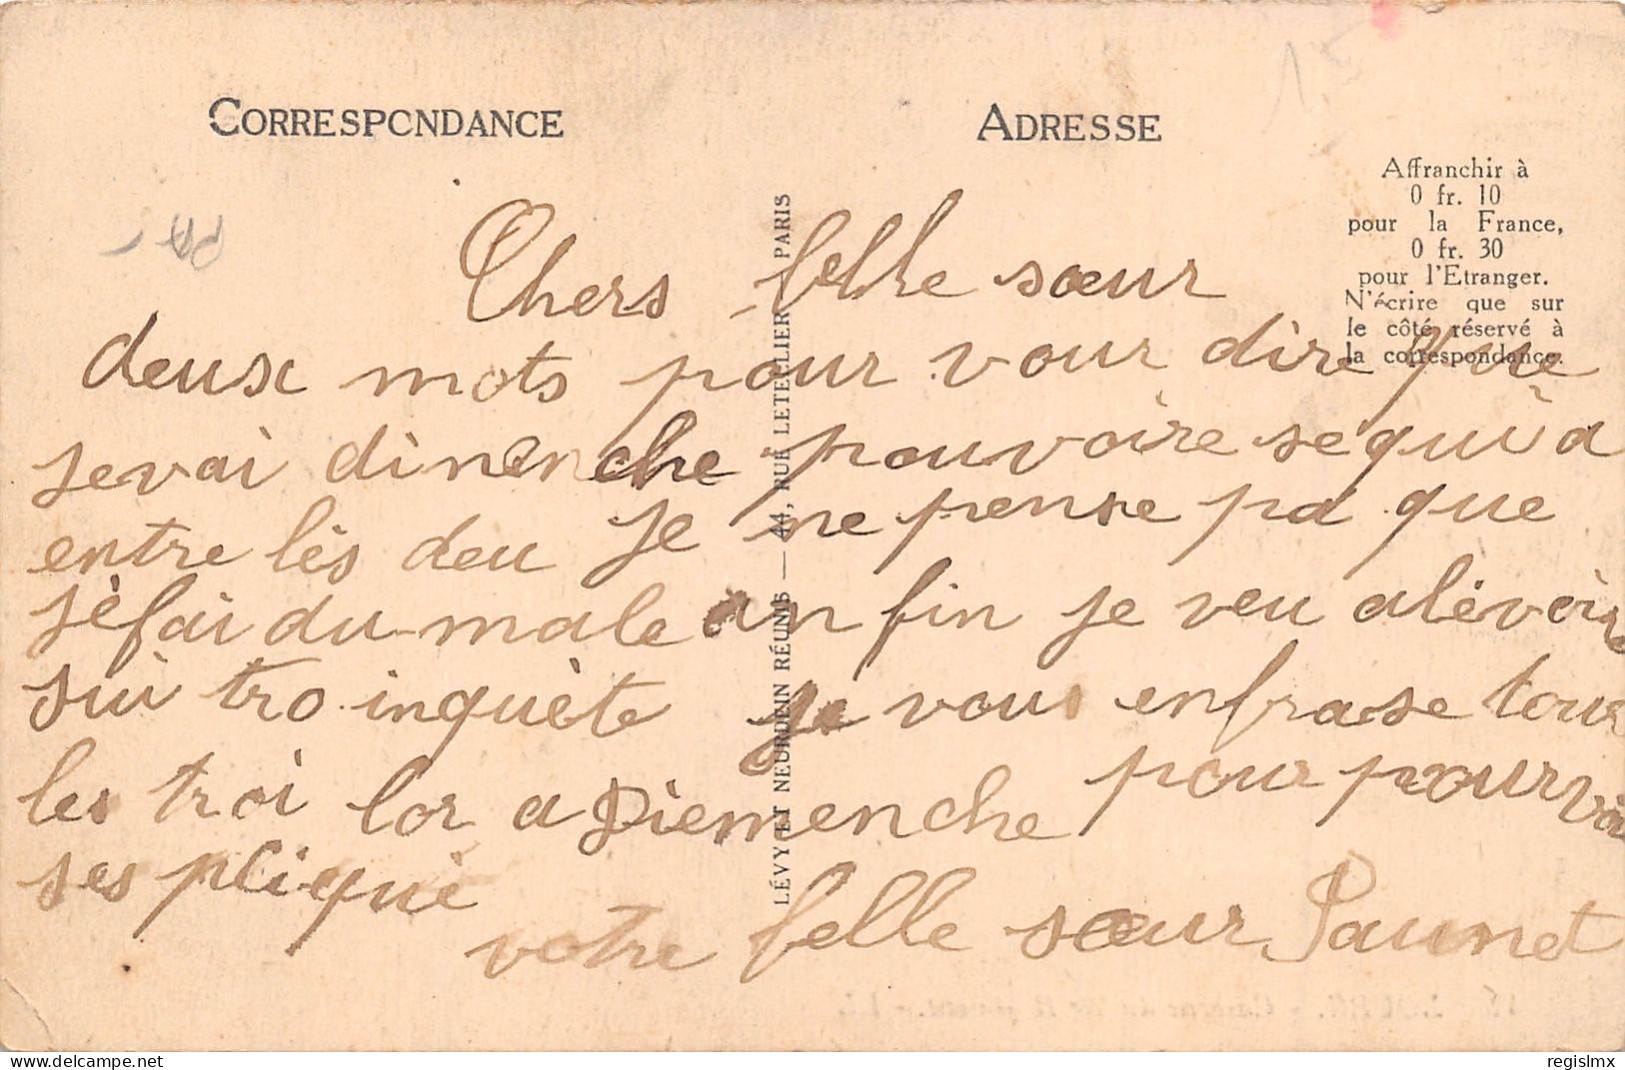 CORRESPONDANCE
ADRESSE
Affranchir à
0 fr. 10
pour la France,
0 fr. 30
pour l'Etranger.
N'écrire que sur
le côté réservé à
la correspondance.
LÉVY ET NEURDEIN RÉUNIS — 44, RUE LETELLIER, PARIS
15
Chers belle sœur
deux mots pour vour dire que
jevai dimenche pouvoire sequi a
entre lès deu je ne pense pa que
jèfai du male an fin je veu alévoir
sui tro inquète je vous enfrase tous
les troi lor a Diemenche pour pourvoi
ses plique
votre belle sœur Paunet
regislmx